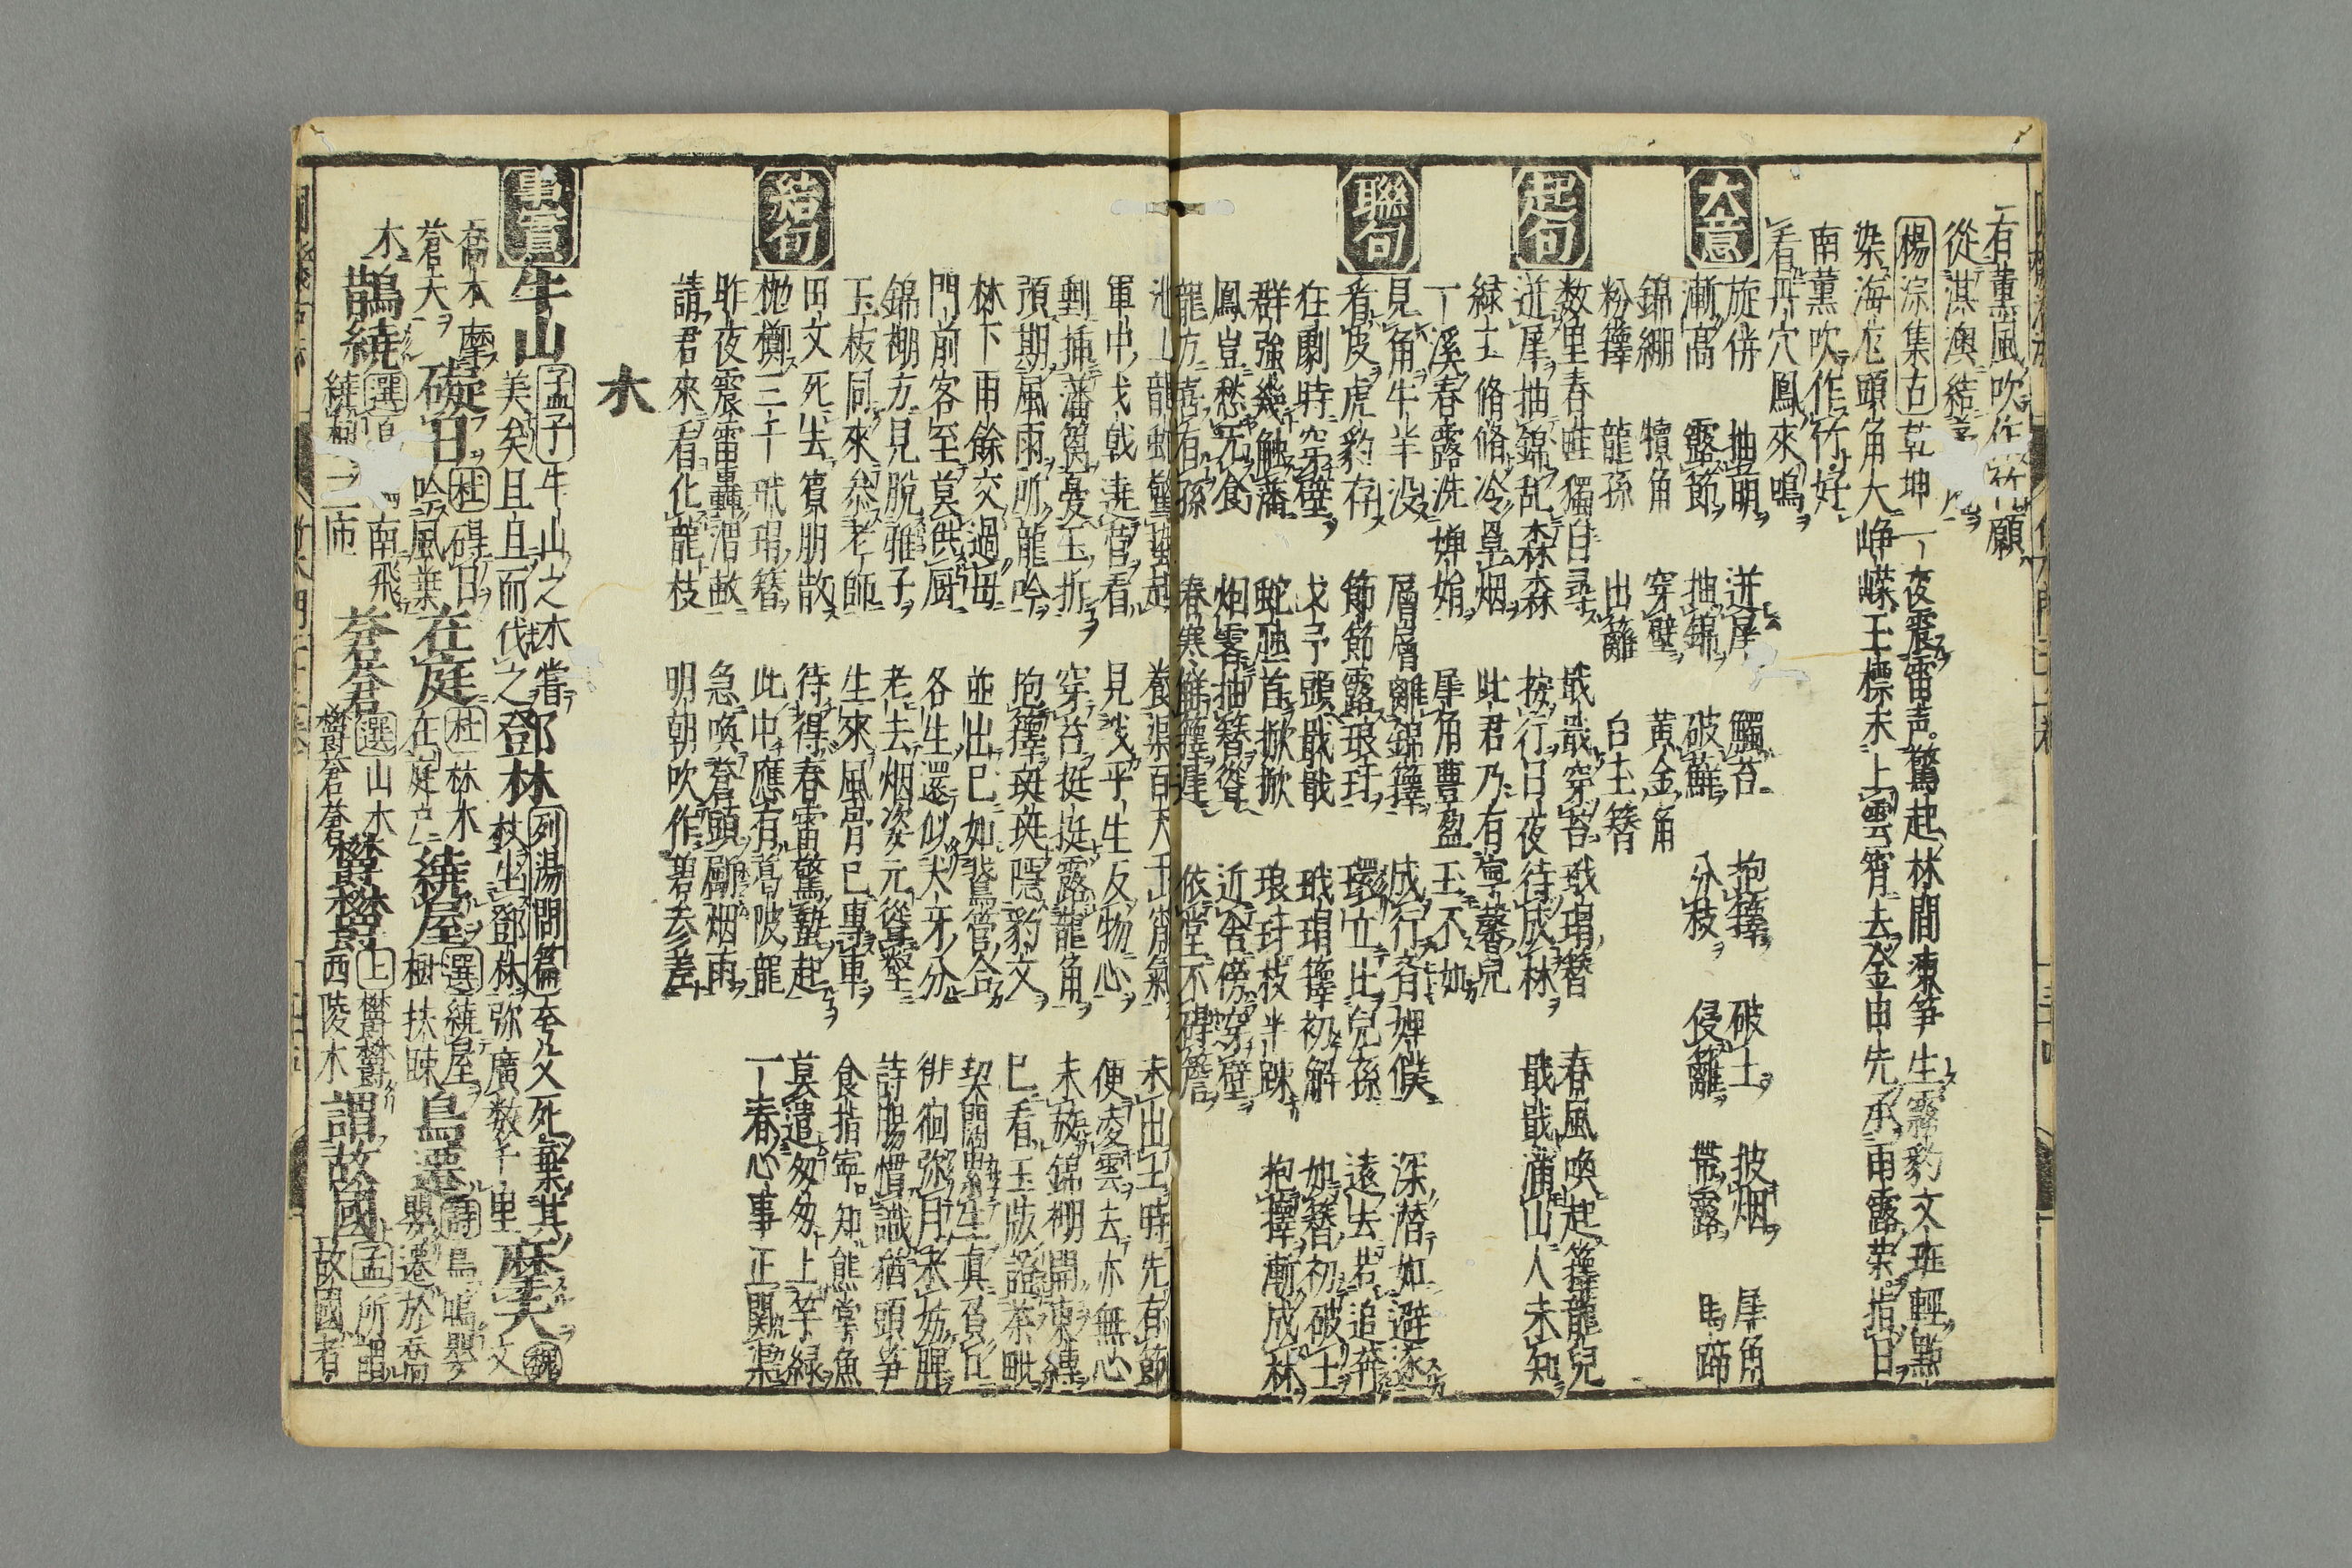 有薫風吹作竹願
從淇澳結
楊淙集古 乾坤一夜震雷声驚起林間束笋生霧豹文班輕點
染海厖頭角大崢嶸玉標未上雲霄去金由先承雨露栄指日
南薫吹作竹好
看丹穴鳳來鳴
大意
旋倂 抽萌 迸犀 觸苔 抱籜 破土 披烟 犀角
漸高 露節 抽錦 破蘚 分枝 侵籬 帶露 馬蹄
錦綳 犢角 穿壁 黄金角
粉籜 龍孫 出籬 白玉簪
起句
数里春畦獨自尋 戢戢穿苔玳瑁簪 春風喚起籜龍兒
迸犀抽錦乱森森 按行日夜待成林 戢戢滿山人未知
緑士脩脩冷皐烟 此君乃有寧馨兒
一溪春露洗嬋娟 犀角豊盈玉不如
聯句
見角牛羊没 層層離錦籜 成行齊婢僕 深潜如避逐
看皮虎豹存 節節露琅玕 環立比兒孫 遠去若追奔
狂劇時穿壁 戈予頭戢戢 玳瑁籜初解 如簪初破土
群強幾触藩 蛇虺首掀掀 琅玕枝半踈 抱籜漸成林
鳳豈愁无食 烟霄抽簪聳 近舍傍穿壁
龍方喜有孫 春寒觧籜遲 依堂不碍簷
池上龍蛇蟹蟄起 養渠百尺干霄氣 未出土時先有節
軍中戈戟遶營看 見我平生反物心 便凌雲去亦無心
剸揷藩篱憂玉折 穿苔挺挺露龍角 未放錦棚開束縛
預期風雨所龍吟 抱籜斑斑隱豹文 已看玉版謡茶毗
林下雨餘交過母 並出已如鵞管合 契闊點生真負此
門前客至莫供厨 各生還似犬牙分 徘徊弥月未妨脾
錦棚方見脫雅子 老去烟姿元聳壑 詩腸慣識猶頭笋
玉枝同來叅老師 生來風骨已專車 食指寧知熊掌魚
結句
田文死去賓朋散 待得春雷驚蟄起 莫遣匆匆上竿緑
抛擲三千玳瑁簪 此中應有葛陂龍 一春心事正関渠
昨夜震雷轟渭畝 急喚蒼頭劚烟雨
請君來看化龍枝 明朝吹作碧参差
木
事實
牛山 孟子 牛山之木嘗美矣且且而伐之 鄧林 列湯問篇 至父死棄其杖生鄧林弥廣数千里 摩天 魏文
喬木摩蒼天 礙日 杜 碍日吟風葉 在庭 杜 林木在庭戸 繞屋 選 繞屋樹扶踈 鳥嚶 詩 鳥鳴嚶嚶遷於喬
木 鵲繞 選 南飛繞樹三匝 蒼蒼 選 山木欝蒼蒼 欝欝 上 欝欝西陵木 謂故國 孟 所謂故國者